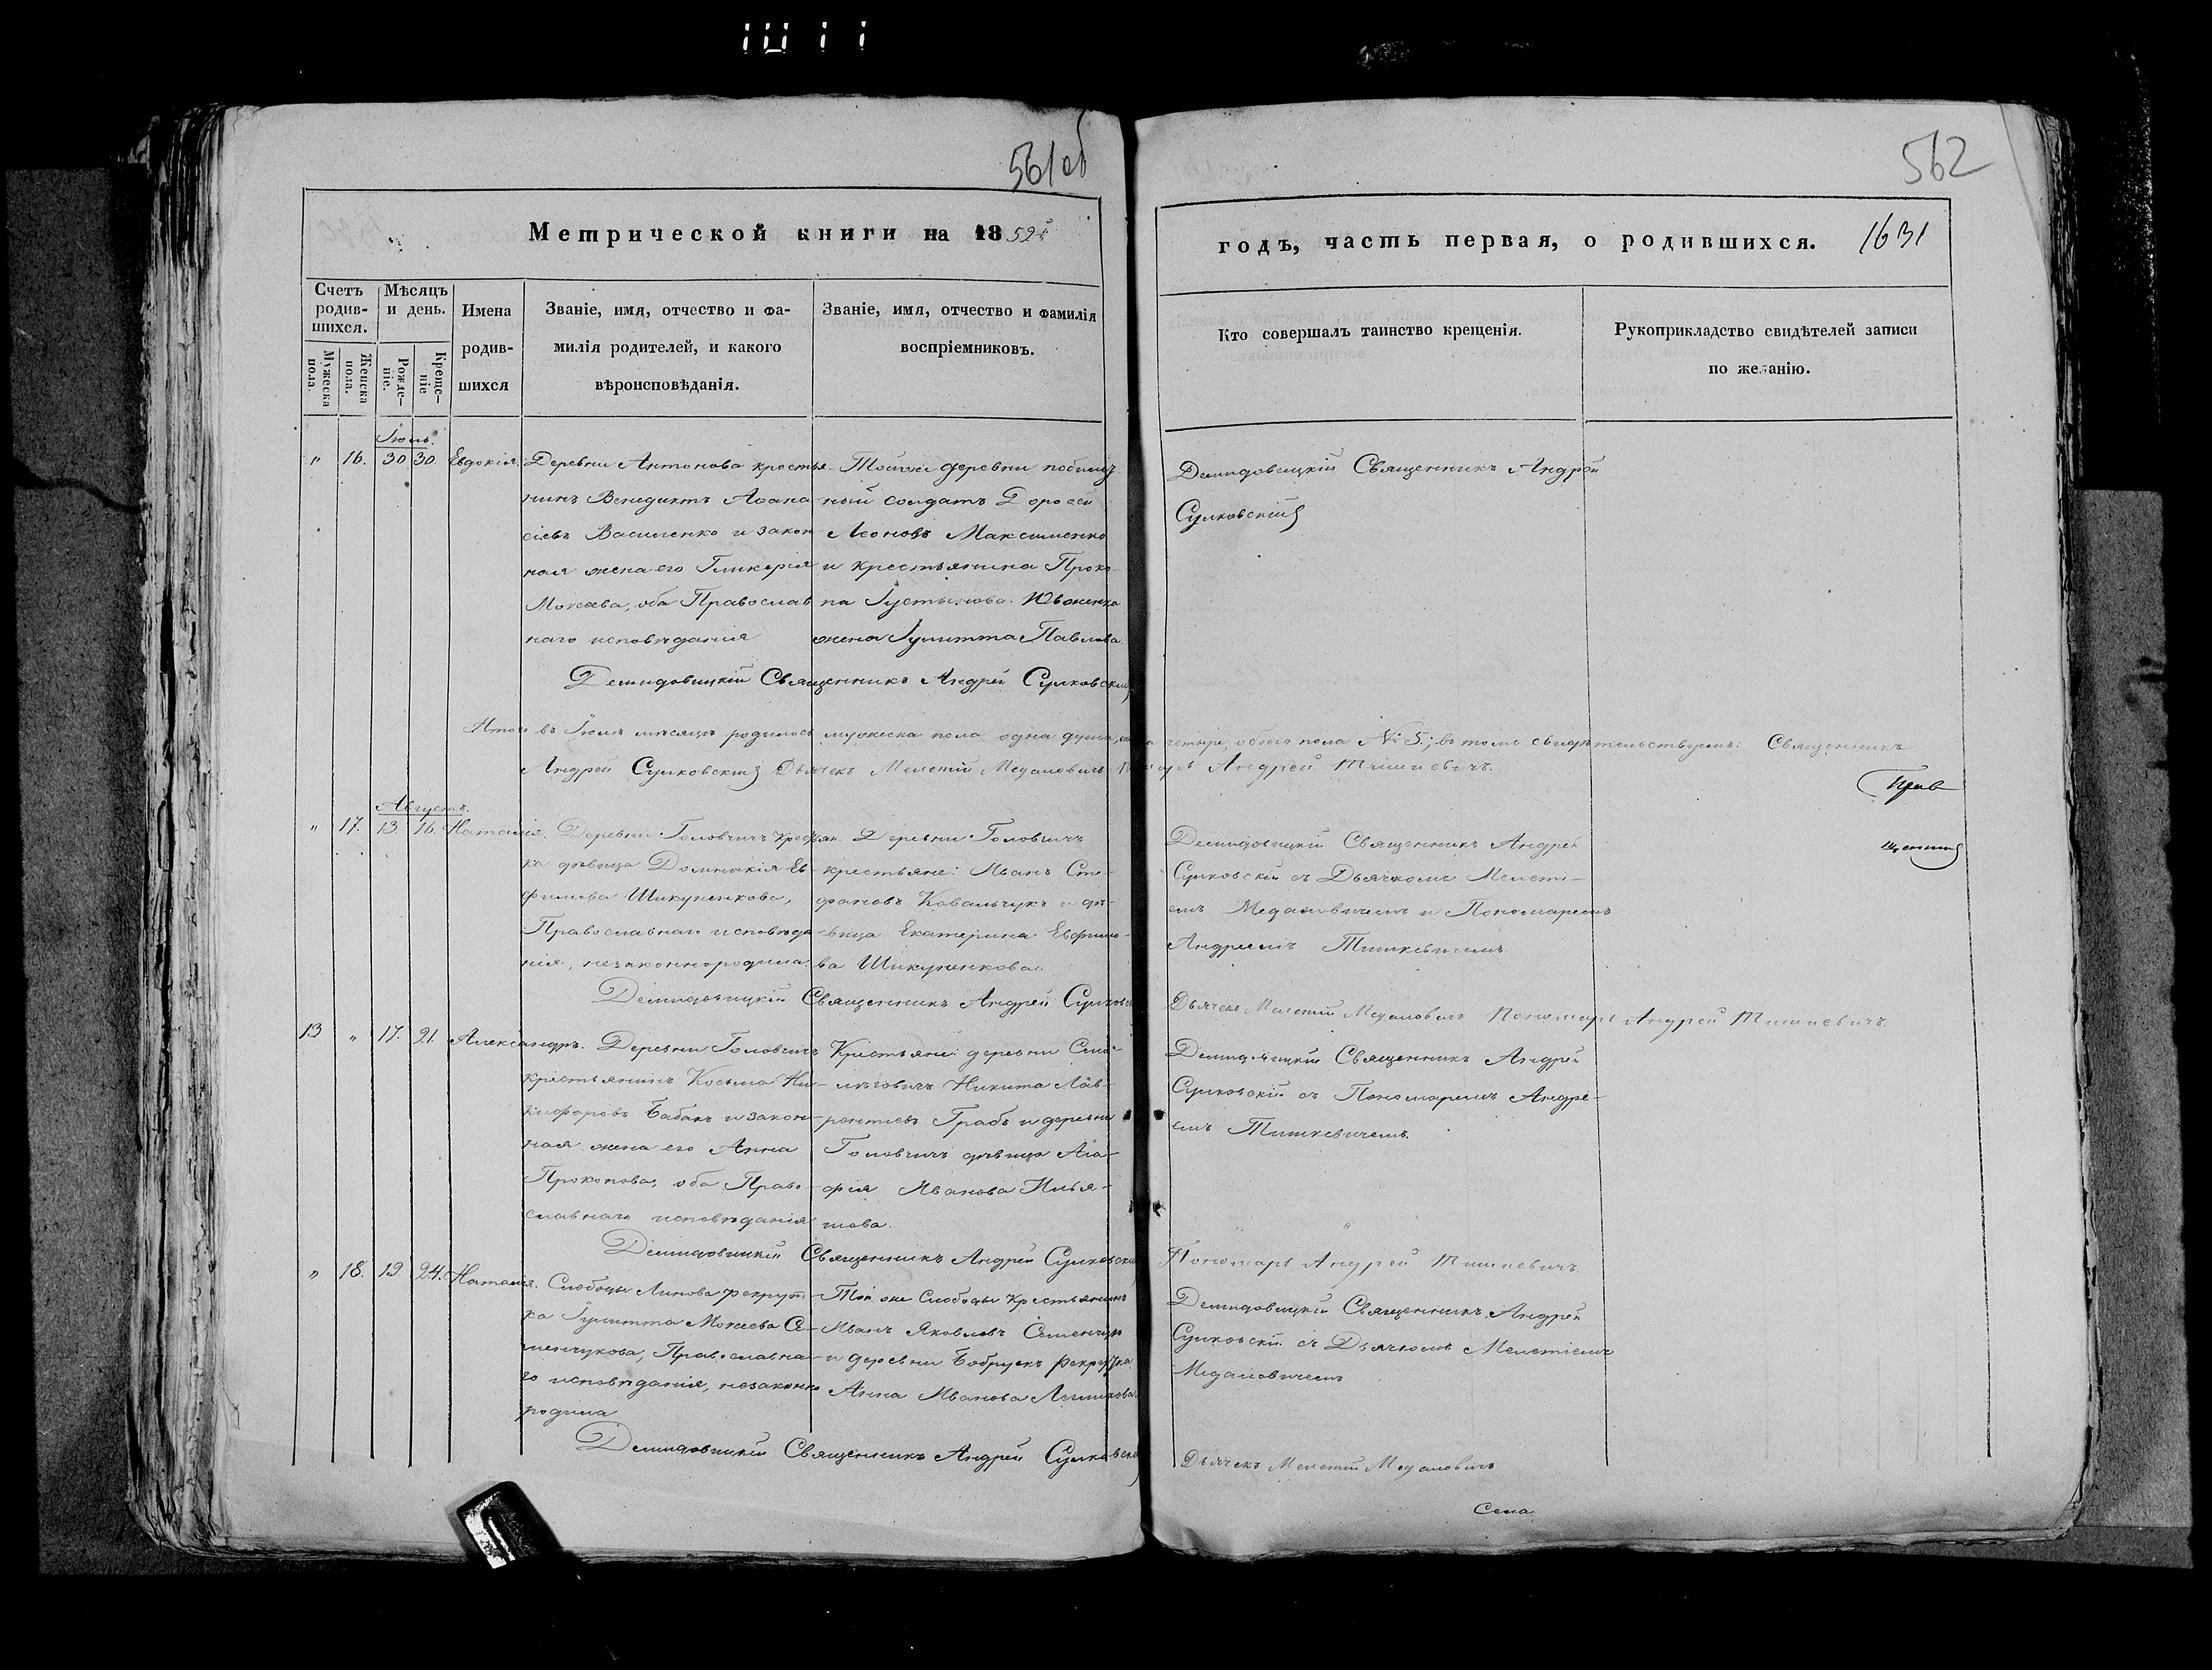 561об
562
Метрической книги на 1852й
годъ, часть первая, о родившихся. 1631
Счетъ родив-шихся.
Мужеска пола.
Женска пола.
Мѣсяцъ и день.
Рожде-ніе.
Креще-ніе
Имена
родив-
шихся
Званіе, имя, отчество и фа-
милія родителей, и какого
вѣроисповѣданія.
Званіе, имя, отчество и фамилія
воспріемниковъ.
Кто совершалъ таинство крещенія.
Рукоприкладство свидѣтелей записи
по желанію.
Іюль.
" 16. 30 30. Евдокія.
Деревни Антонова крестья-
нинъ Венедиктъ Аѳана
сіевъ Василенко и закон-
ная жена его Гликерія
Мокеева, оба Православ
наго исповѣданія
Тойже деревни
ный солдатъ Дороѳей
Леоновъ Максименко
и крестьянина Проко-
па Іустинова
жена Іулитта Павлова.
Демидовицкій Священникъ Андрей
Сулковскій
Демидовицкій Священникъ Андрей Сулковскій
Итого въ Іюлѣ мѣсяцѣ родилось мужеска пола одна душа, четыре, обоего пола № 5.; въ томъ свидѣтельствуемъ: Священникъ
Андрей Сулковскій Дьячекъ Мелетій Медаловичъ Андрей Тишкевичъ.
Августъ.
" 17. 13. 16. Наталія.
Деревни Головчичъ крестьян-
ка дѣвица Домникія Ев-
фимова Шикуленкова,
Православнаго исповѣда-
нія, незаконнородила.
Деревни Головчичъ
крестьяне: Иванъ Сте-
фановъ Ковальчукъ и дѣ-
вица Екатерина Евфимо-
ва Шикуленкова.
Демидовицкій Священникъ Андрей
Сулковскій съ Дьячкомъ Мелеті-
емъ Медаловичемъ и Пономаремъ
Андреемъ Тишкевичемъ.
Демидовицкій Священникъ Андрей Сулковскій
Дьячекъ Мелетій Медаловичъ Пономарь Андрей Тишкевичъ.
13 " 17. 21. Александръ.
Деревни Головчичъ
крестьянинъ Косьма Ни-
кифоровъ Бабакъ и закон-
ная жена его Анна
Прокопова, оба Право-
славнаго исповѣданія
Крестьяне: деревни
Никита Лав-
рентіевъ Грабъ и деревни
Головчичъ дѣвица Ага-
фія Иванова Илья-
шова.
Демидовицкій Священникъ Андрей
Сулковскій съ Пономаремъ Андре-
емъ Тишкевичемъ.
Демидовицкій Священникъ Андрей Сулковскій
Пономарь Андрей Тишкевичъ.
" 18. 19. 24. Наталія.
Слободы Линова рекрут-
ка Іулитта Мокеева Се-
менчукова, Православна-
го исповѣданія, незаконно
родила
Той же Слободы Крестьянинъ
Иванъ Яковлевъ Семенчукъ
и деревни Бобрускъ рекрутка
Анна Иванова
Демидовицкій Священникъ Андрей
Сулковскій съ Дьячкомъ Мелетіемъ
Медаловичемъ
Демидовицкій Священникъ Андрей Сулковскій
Дьячекъ Мелетій Медаловичъ
Села